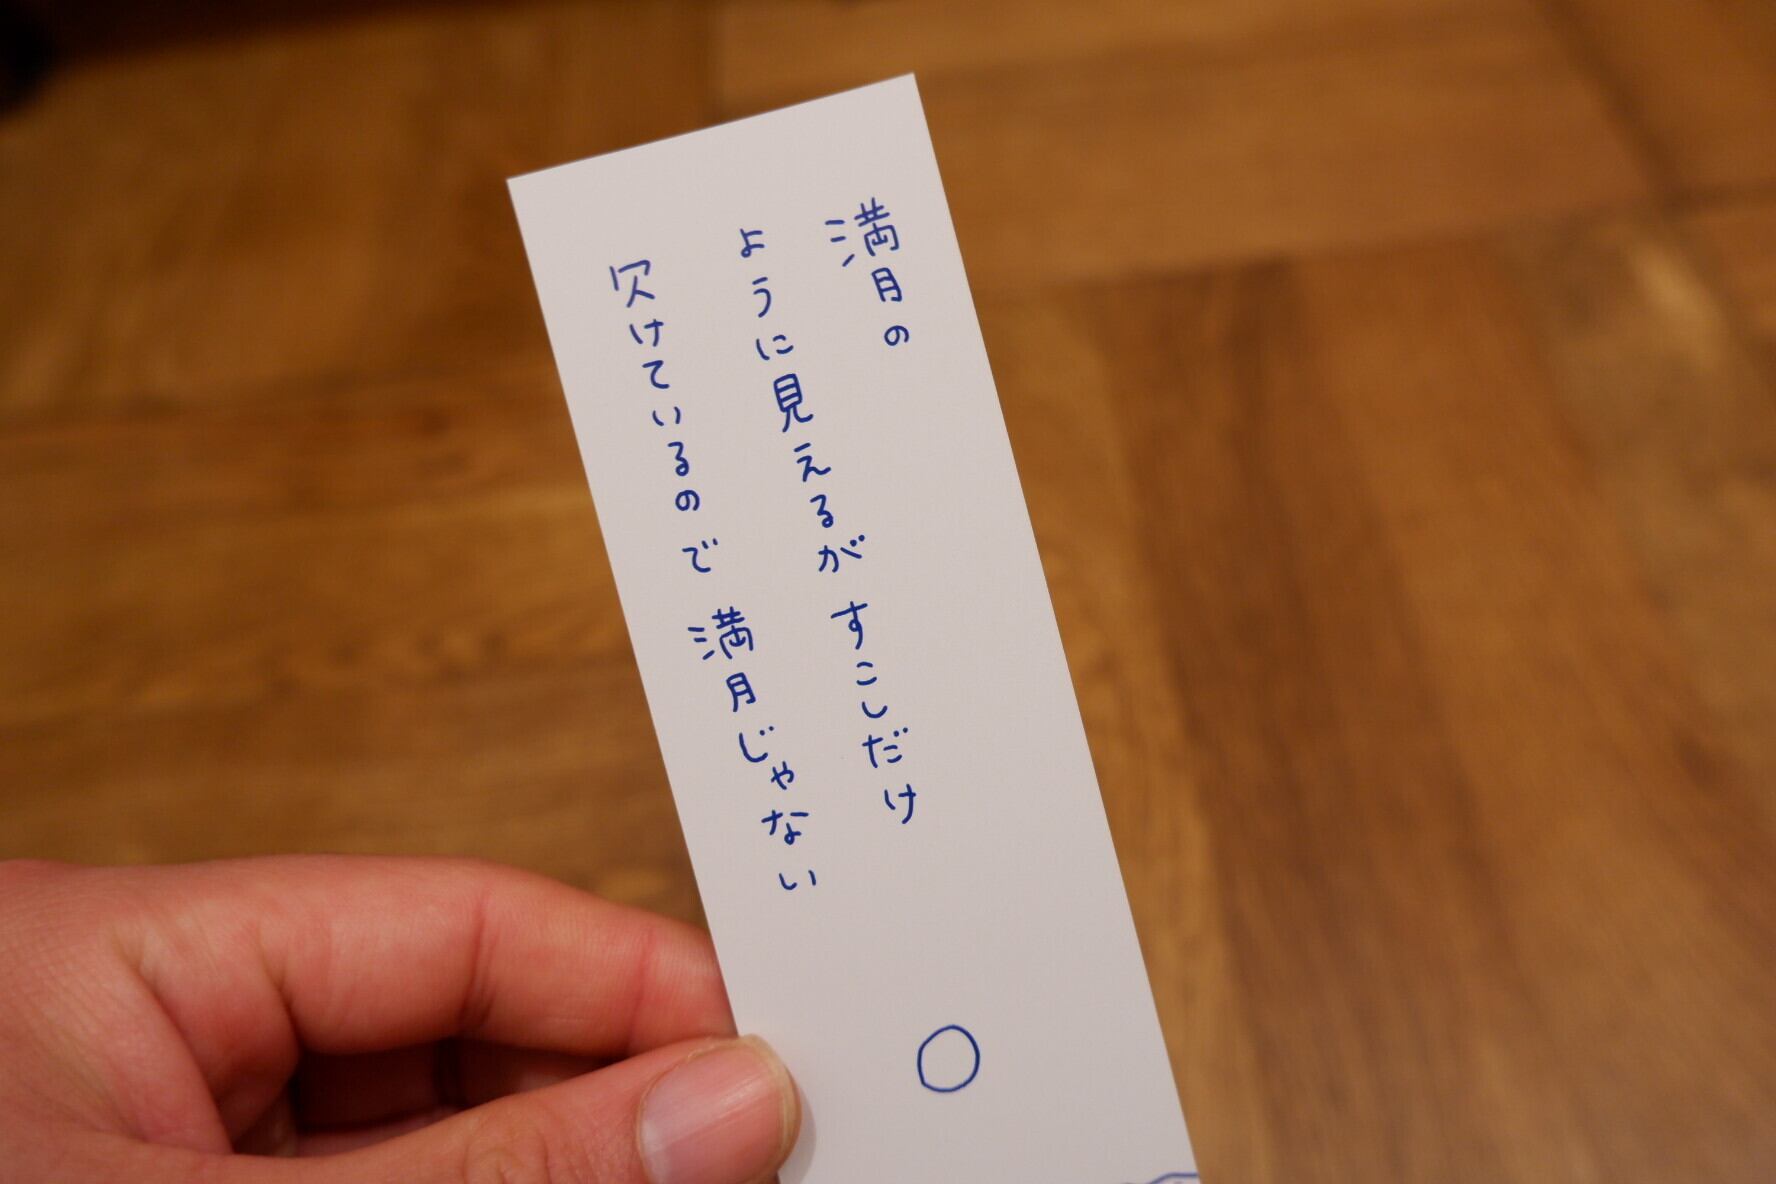 満月の
ように見えるがすこしだけ
欠けているので満月じゃない